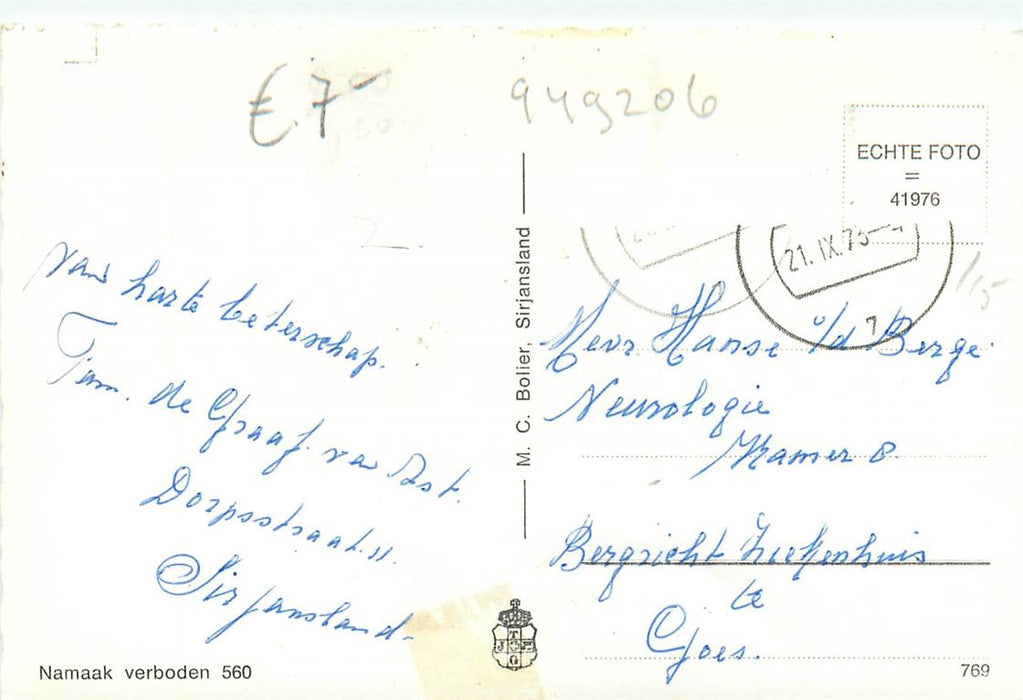 € 7-
949206
ECHTE FOTO
=
41976
21. IX. 73
7
van harte beterschap.
Fam. de Graaf. van
Dorpsstraat 11.
Sirjansland-
M. C. Bolier, Sirjansland
Mevr Hanse v/d Berge.
Neurologie
Kamer 8.
Bergzicht Ziekenhuis
te
Goes.
Namaak verboden 560
769